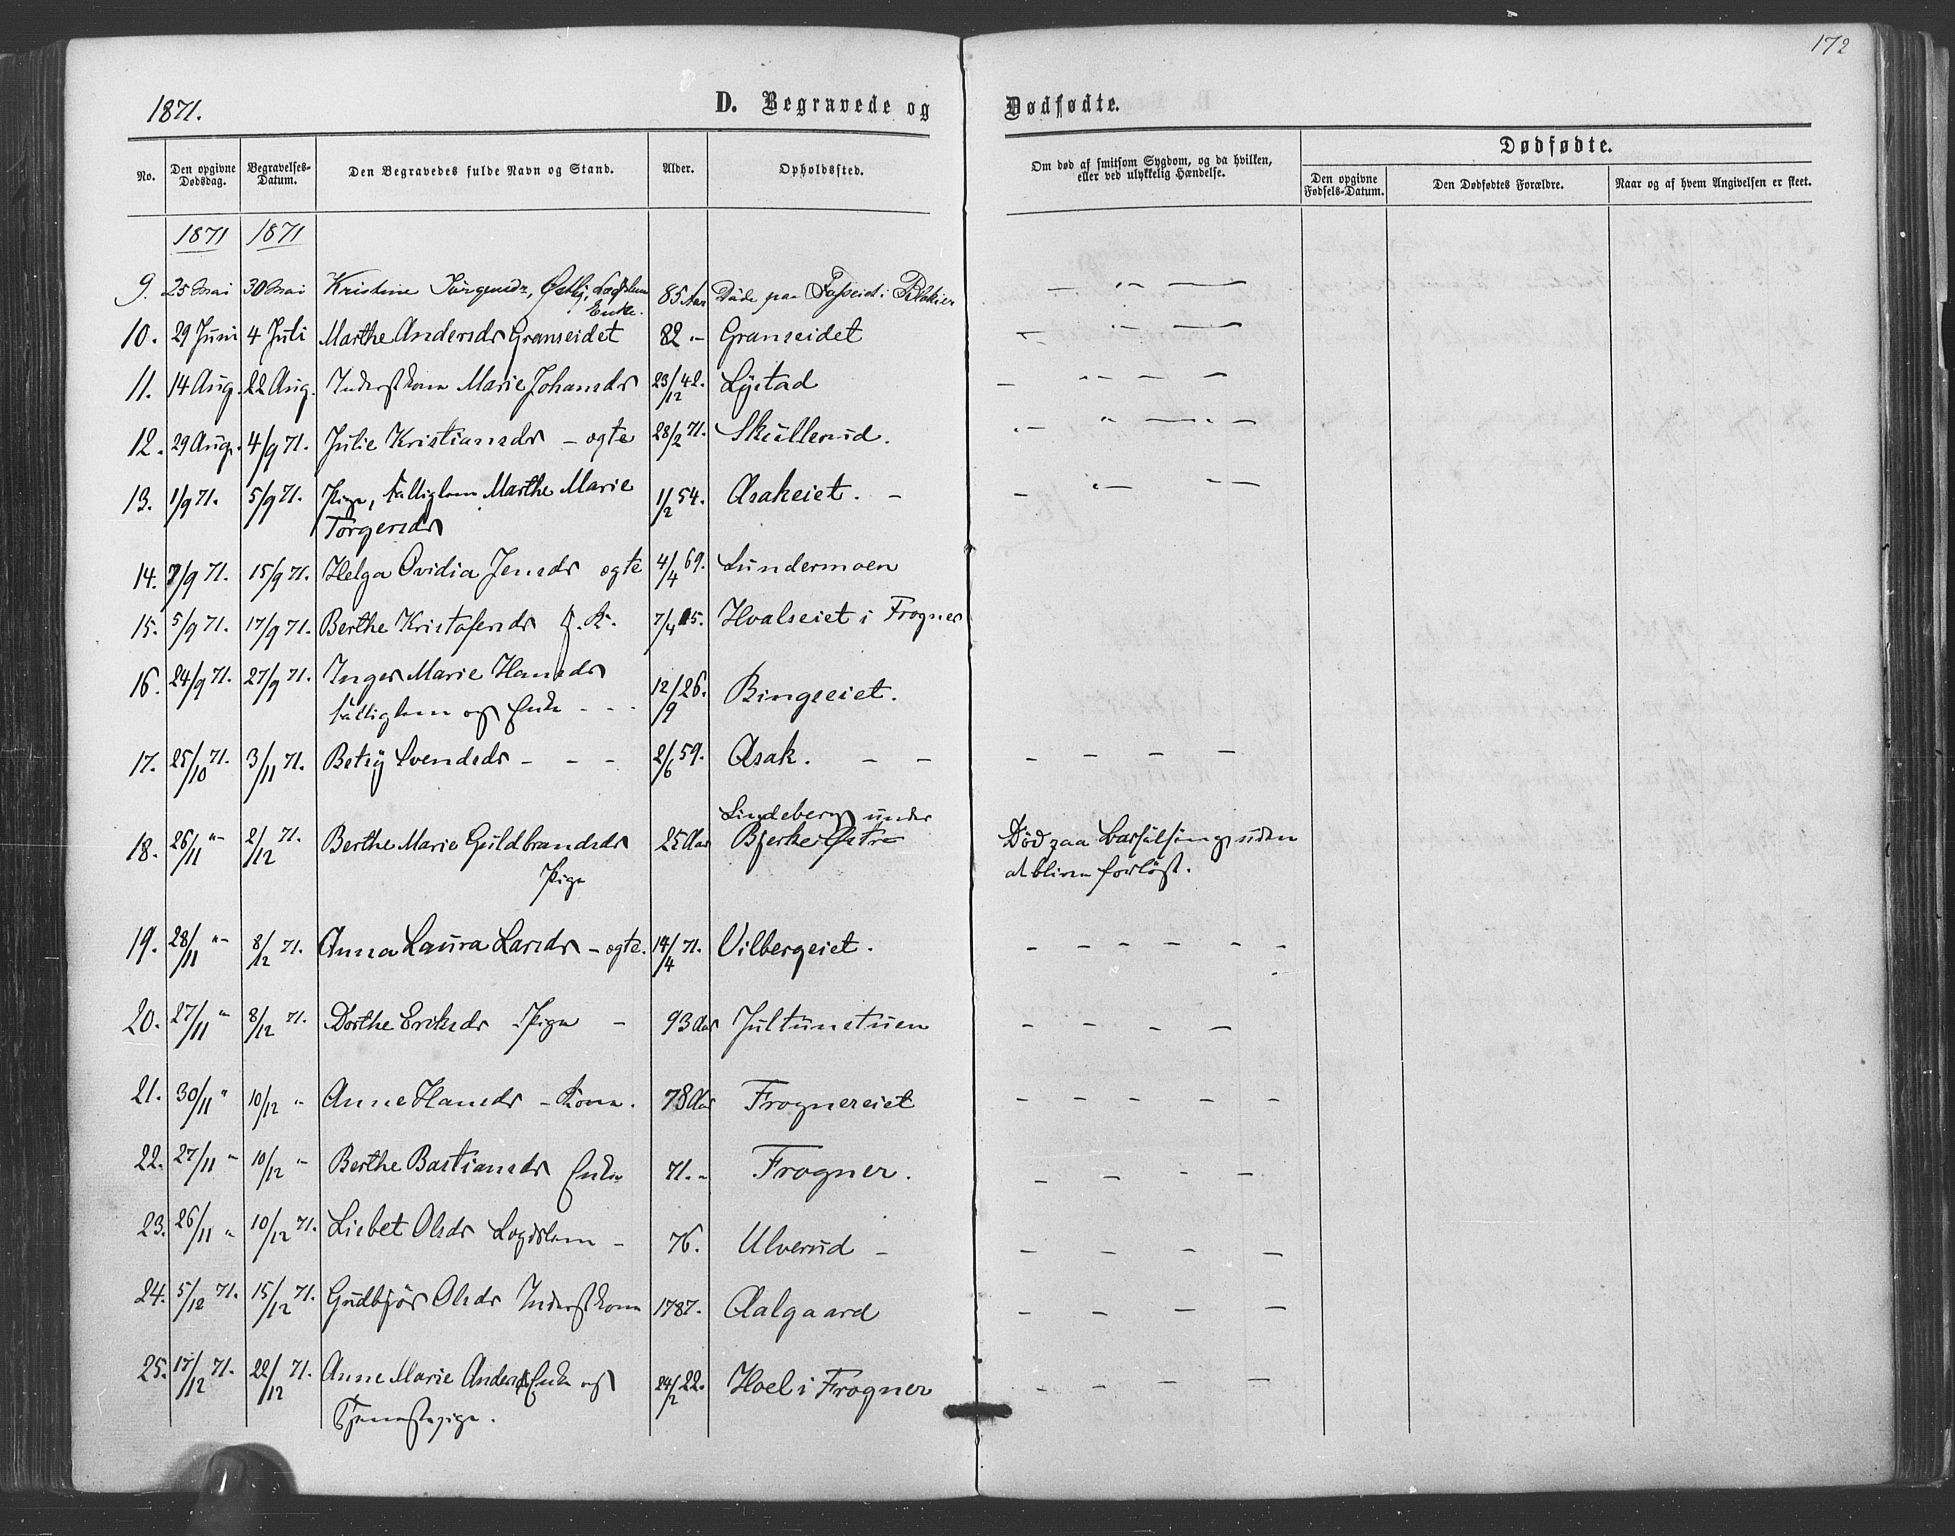 172
1871.
D. Begravede og Dødfødte.
No.
Den opgivne Dødsdag.
Begravelses-Datum.
Den Begravedes fulde Navn og Stand.
Alder.
Opholdssted.
Om død af smitsom Sygdom, og da hvilken, eller ved ulykkelig Hændelse.
Dødfødte.
Den opgivne Fødsels-Datum.
Den Dødfødtes Forældre.
Naar og af hvem Angivelsen er skeet.
1871 1871
9. 25 Mai 30 Mai Kristine Jørgensdr, Østby, Lægdslem 85 Aar Døde paa i
Enke.
10. 29 Juni 4 Juli Marthe Andersdr Granseidet 82 „ Granseidet
11. 14 Aug. 22 Aug. Inderstkone Marie Johansdr 23/12 42. Lystad
12. 29 Aug. 4/9 71. Julie Kristiansdr – ogte 28/2 71. Skullerud.
13. 1/9 71. 5/9 71. Pige, Fattiglem Marthe Marie 1/2 54. Asakeiet. –
Torgersdr
14. 7/9 71. 15/9 71. Helga Ovidia Jensdr ogte 4/4 69. Lundermoen
15. 5/9 71. 17/9 71. Berthe Kristofersdr G. K. 7/4 15. Hvalseiet i Frogner
16. 24/9 71. 27/9 71. Inger Marie Hansdr 12/9 26. Bingseiet.
Fattiglem og Enke – – –
17. 25/10 71. 3/11 71. Betsy Svendsdr – – – 2/6 59. Asak. – –
Lindeberg under
18. 26/11 „ 2/12 71. Berthe Marie Guldbrandsdr 25 Aar Bjerke Østre Død paa Barselseng uden
Pige at bliva forløst.
19. 28/11 „ 8/12 71. Anna Laura Larsdr – ogte. 14/4 71. Vilbergeiet.
20. 27/11 „ 8/12 71. Dorthe Eriksdr Pige – 93 Aar Jultunstuen
21. 30/11 „ 10/12 „ Anne Hansdr – Kone. 78 Aar Frognereiet
22. 27/11 „ 10/12 „ Berthe Bastiansdr Enke 71. „ Frogner.
23. 26/11 „ 10/12 71. Lisbet Olsdr Lægdslem – 76. Ulverud –
24. 5/12 71. 15/12 71. Gudbjør Olsdr Inderstkone 1787. Aalgaard
25. 17/12 71. 22/12 71. Anne Marie Andersdr Enke og 24/2 22. Hoel i Frogner
Tjenestepige.